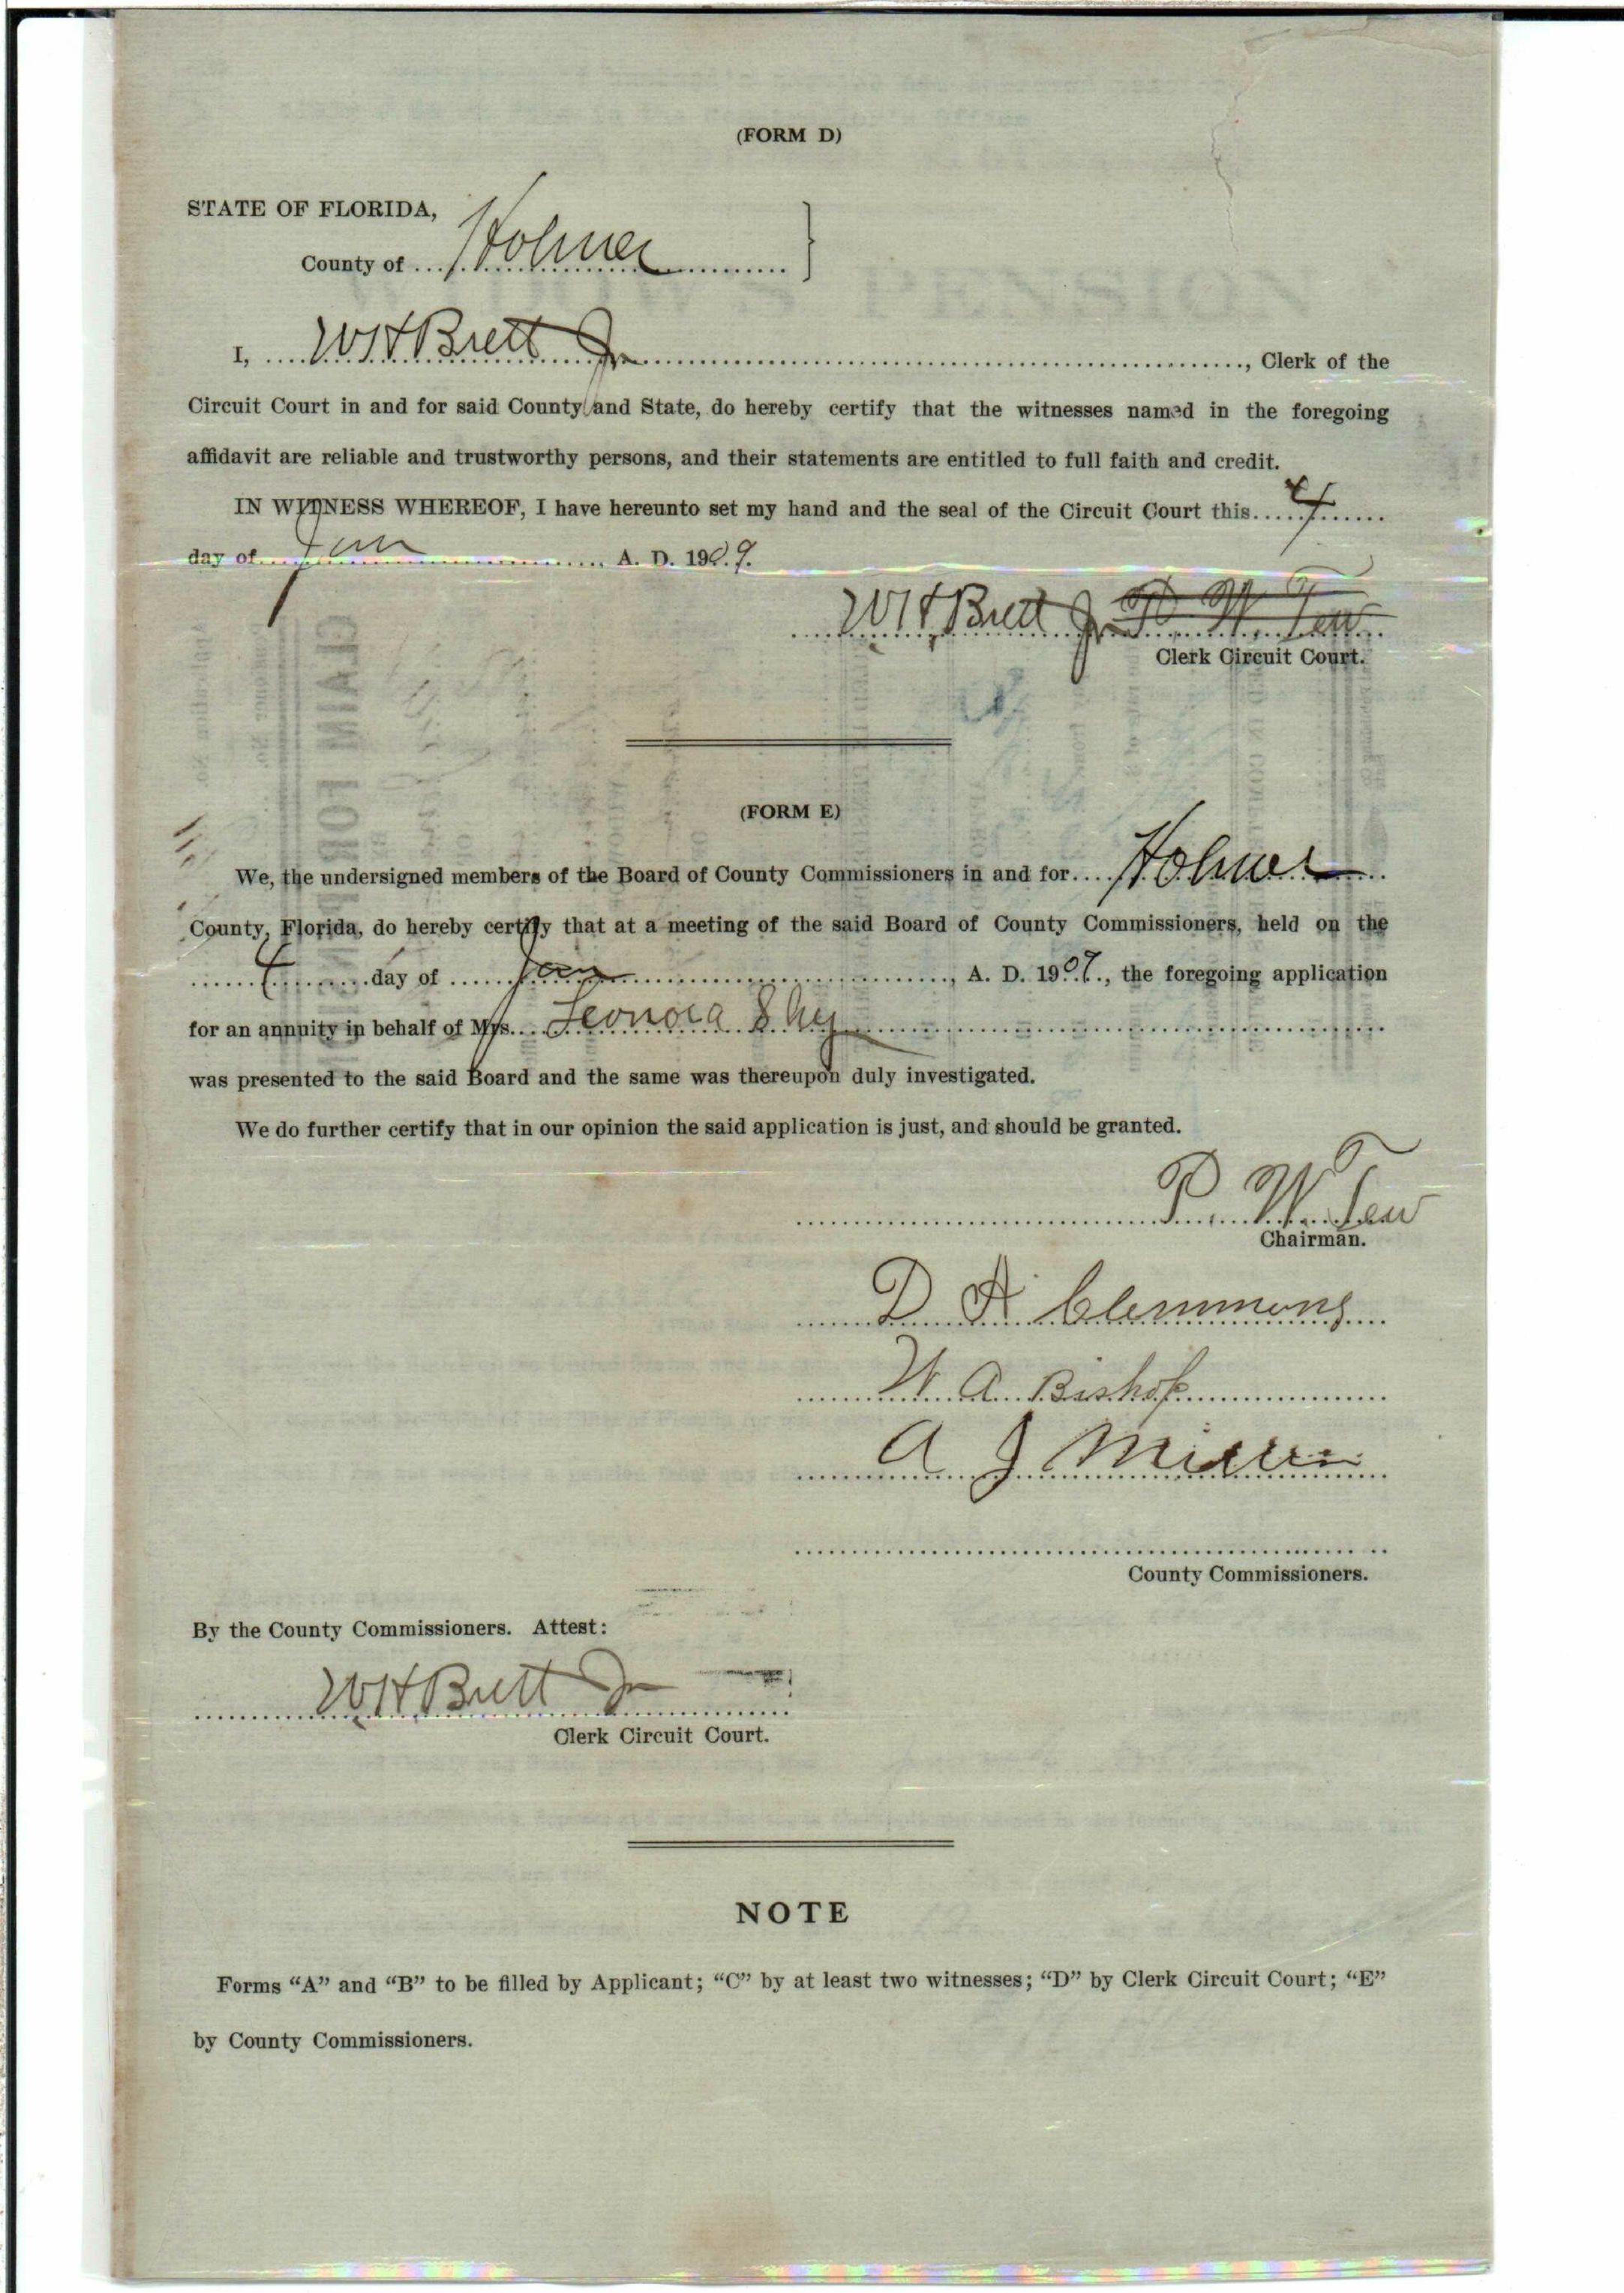 (FORM D)
STATE OF FLORIDA,
County of Holmes
I, W H Brett Jr, Clerk of the
Circuit Court in and for said County and State, do hereby certify that the witnesses named in the foregoing
affidavit are reliable and trustworthy persons, and their statements are entitled to full faith and credit.
IN WITNESS WHEREOF, I have hereunto set my hand and the seal of the Circuit Court this 4
day of Jan A. D. 1909.
W H Brett Jr P. W. Tew
Clerk Circuit Court.
(FORM E)
We, the undersigned members of the Board of County Commissioners in and for Holmes
County, Florida, do hereby certify that at a meeting of the said Board of County Commissioners, held on the
4 day of Jan, A. D. 190, the foregoing application
for an annuity in behalf of Mrs. Leonora Shy
was presented to the said Board and the same was thereupon duly investigated.
We do further certify that in our opinion the said application is just, and should be granted.
P. W. Tew
Chairman.
D H Clemmons
W. A. Bishop
A J Miller
County Commissioners.
By the County Commissioners. Attest:
W H Brett Jr
Clerk Circuit Court.
NOTE
Forms “A” and “B” to be filled by Applicant; “C” by at least two witnesses; “D” by Clerk Circuit Court; “E”
by County Commissioners.